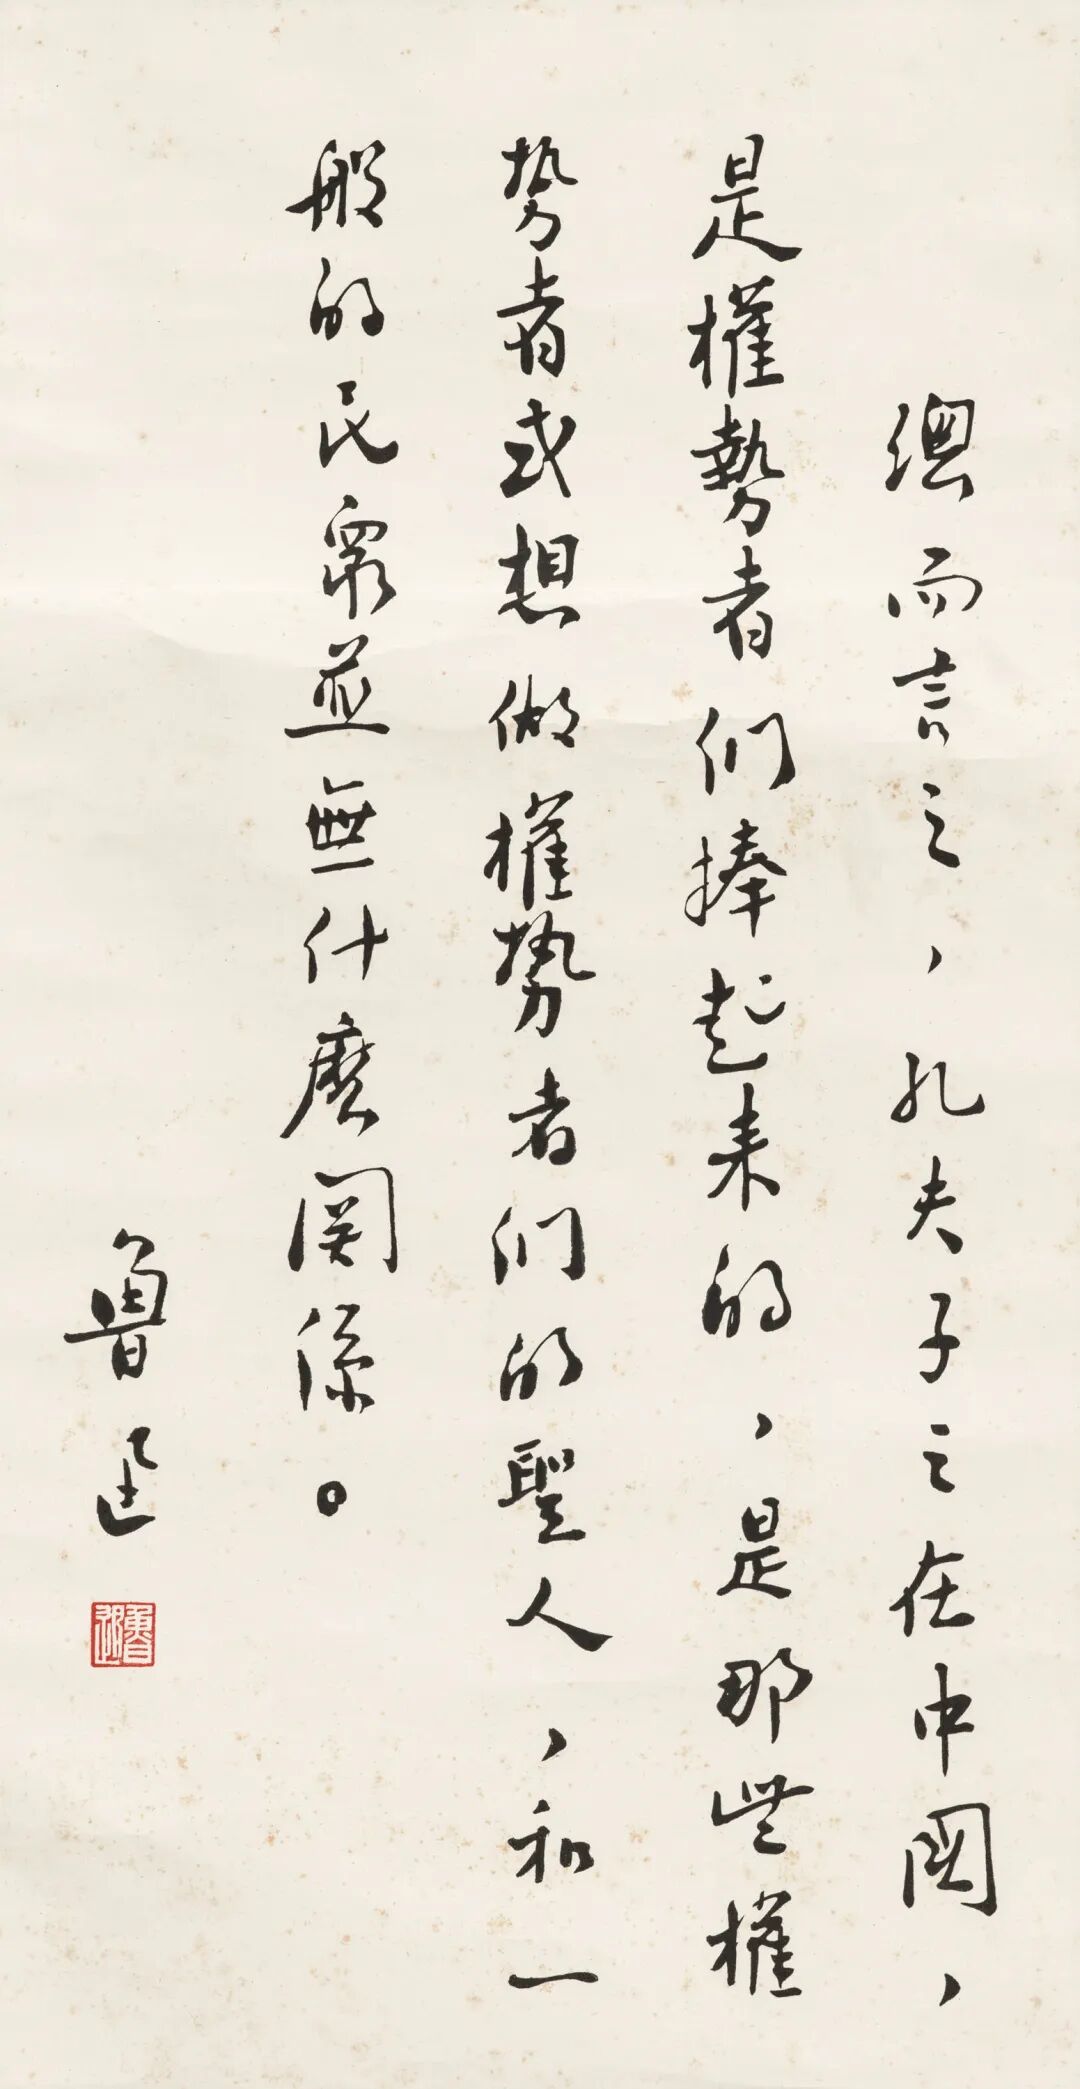 總而言之，孔夫子之在中國，
是權勢者们捧起来的，是那些權
势者或想做權势者们的聖人，和一
般的民衆並無什麽関係。
魯迅
魯迅